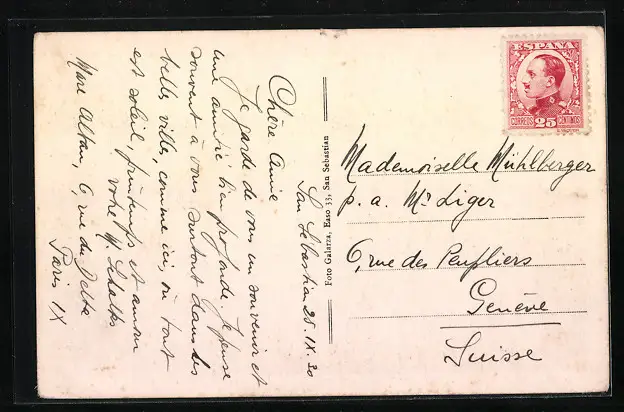 San Sebastián 25.IX.30
Chère Amie
Je garde de vous un souvenir et
une amitié bien profonde. Je pense
souvent à vous surtout dans des
belles villes, comme ici, où tout
est soleil, printemps et amour
votre
Marc 6 rue du Delta
Paris IX
Foto Galarza, Easo 53, San Sebastian
ESPAÑA
CORREOS 25 CENTIMOS
Mademoiselle Mühlberger
p. a. Mr Liger
6, rue des Peupliers
Genève
Suisse